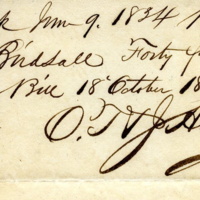 k Nov 9. 1834
Birdsall Forty
Bill 18 October 18
O. T.